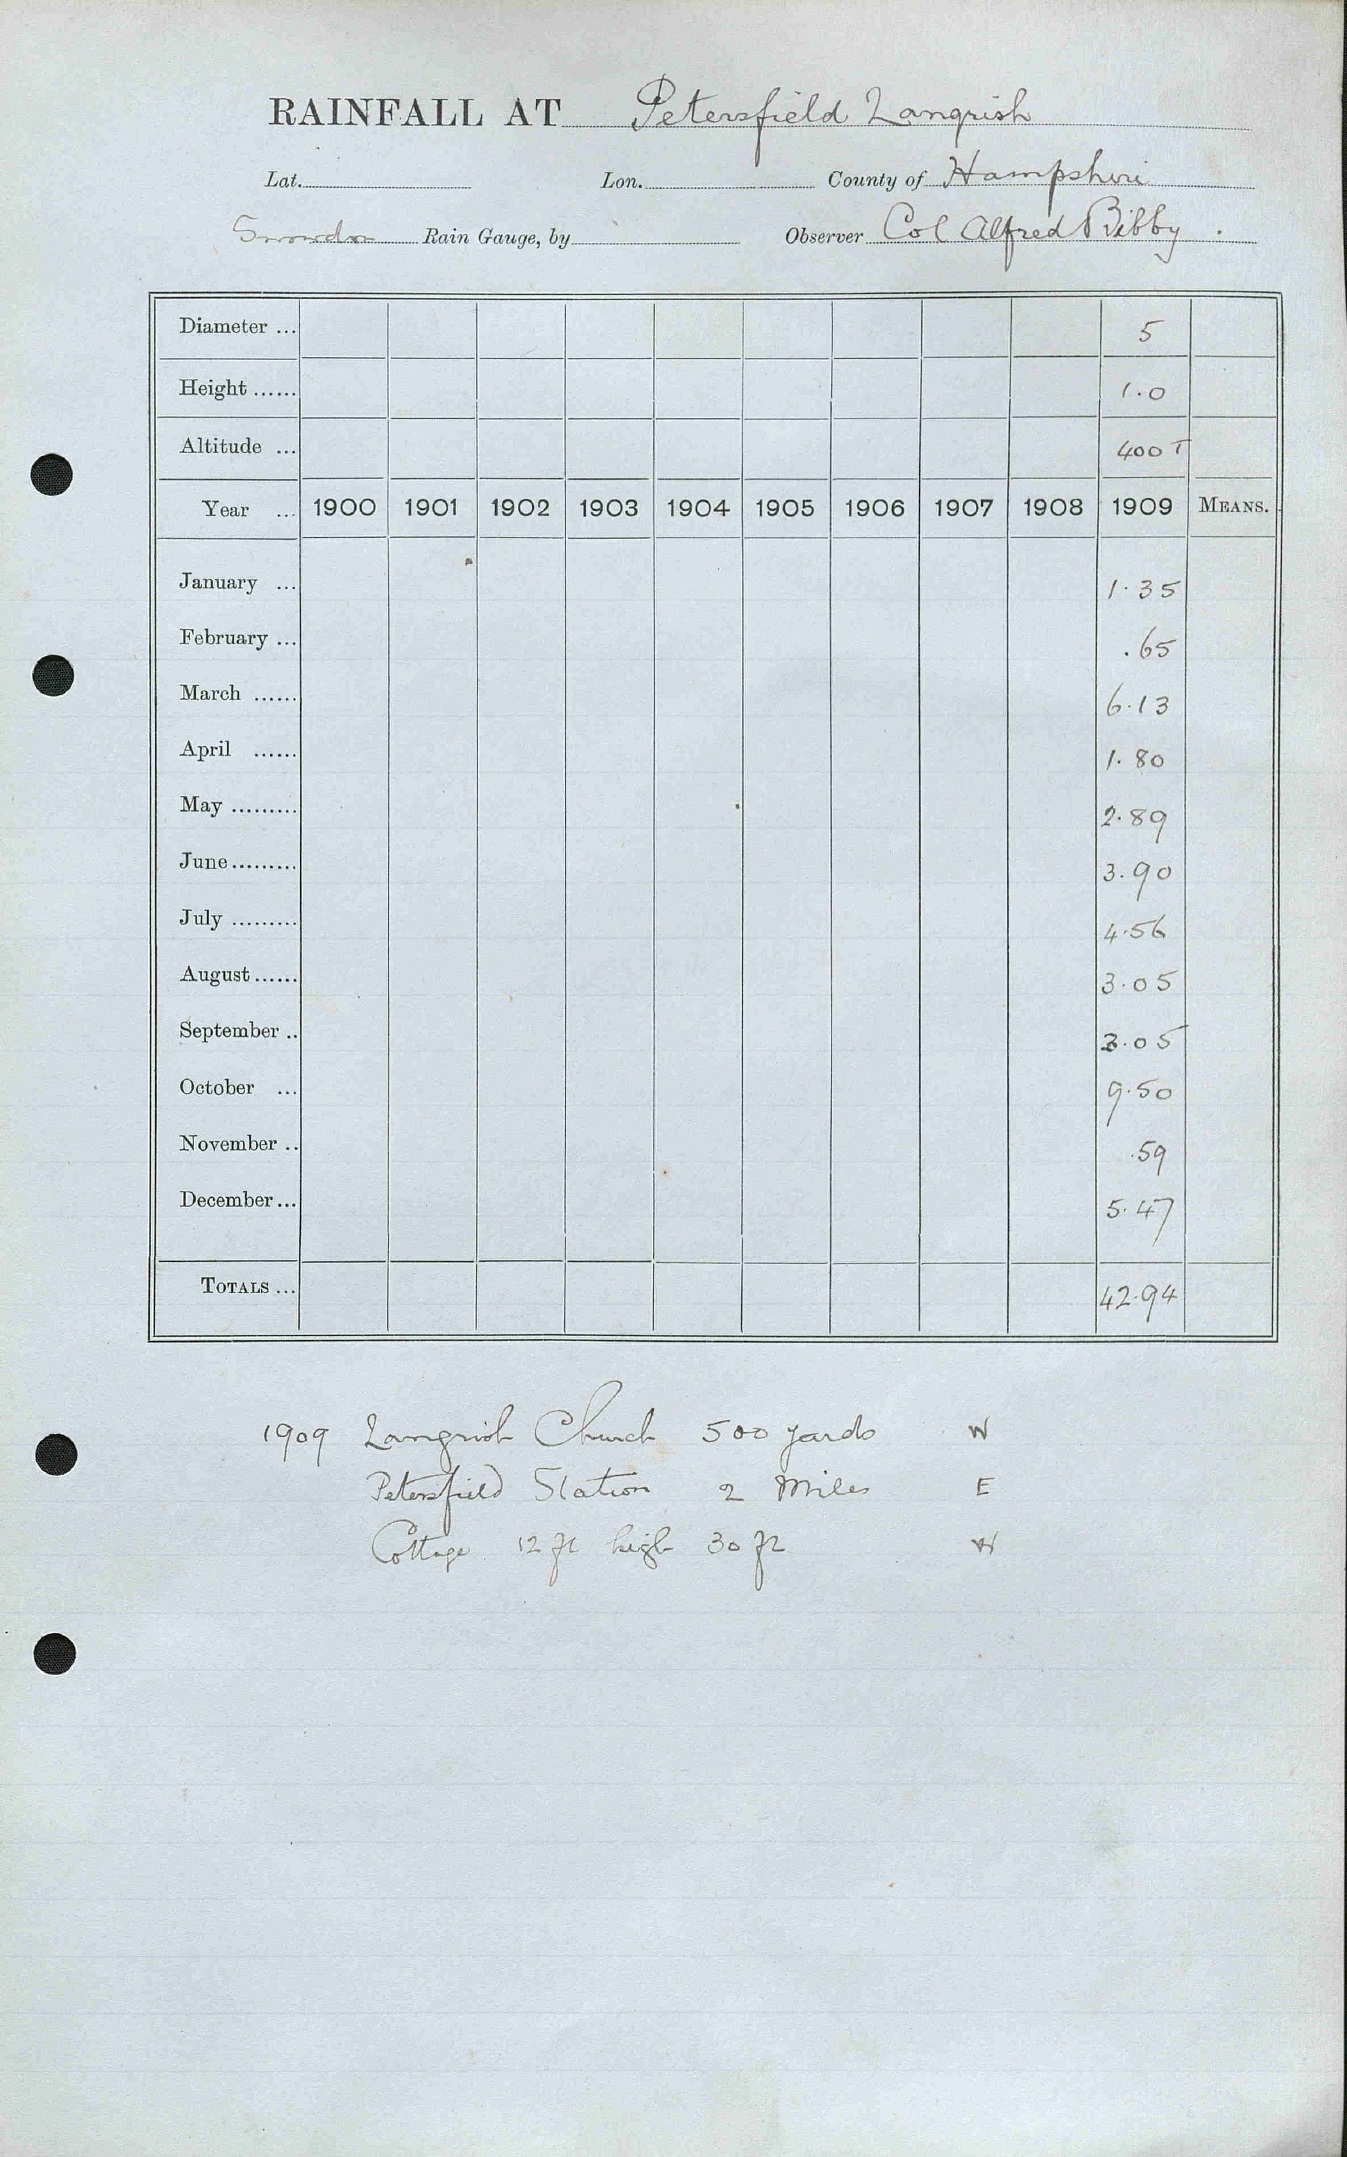 RAINFALL AT Petersfield Langrish
Lat. Lon. County of Hampshire
Snowdon Rain Gauge, by Observer Col Alfred Bibby.
Diameter ... 5
Height ...... 1.0
Altitude ... 400 T
Year ... 1900 1901 1902 1903 1904 1905 1906 1907 1908 1909 MEANS.
January ... 1.35
February ... .65
March ...... 6.13
April ...... 1.80
May ......... 2.89
June ......... 3.90
July ......... 4.56
August ...... 3.05
September .. 3.05
October ... 9.50
November .. .59
December ... 5.47
TOTALS ... 42.94
1909 Langrish Church 500 yards W
Petersfield Station 2 Miles E
Cottage 12 ft high 30 ft W